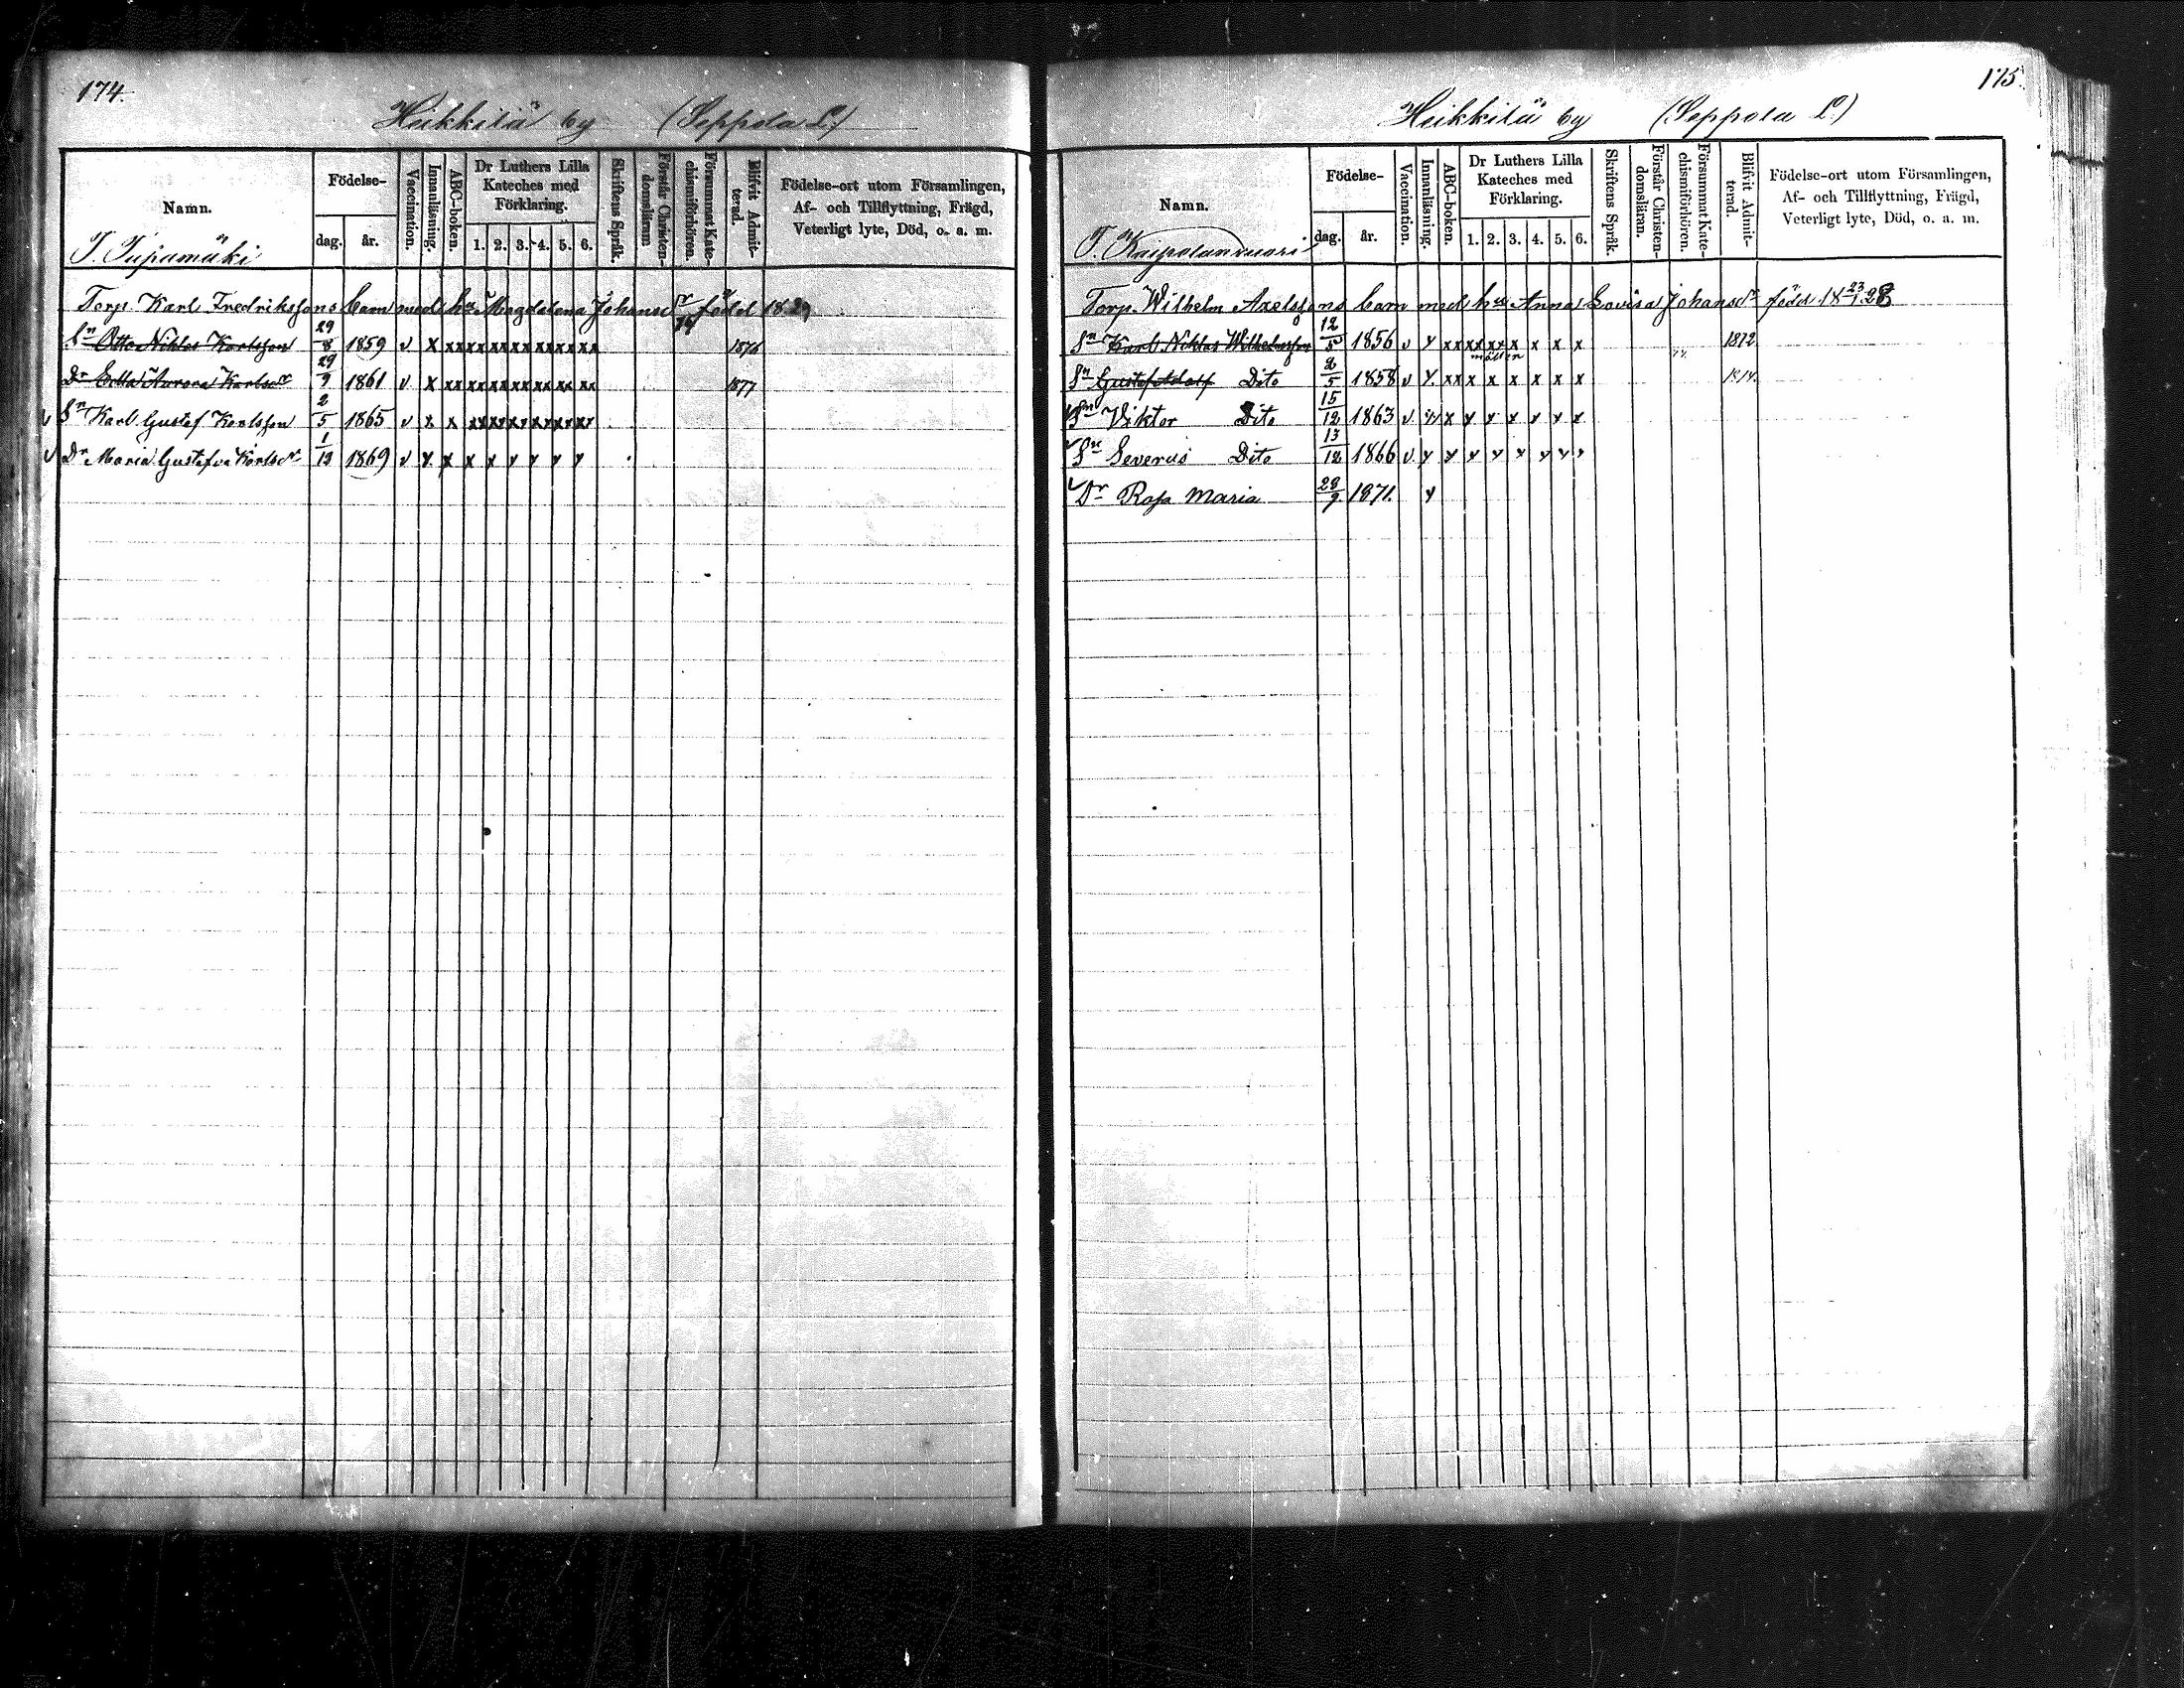 174.
Heikkilä by (Seppola L.)
Namn.
Födelse-
dag. år.
Vaccination.
Innanläsning.
ABC-boken.
Dr Luthers Lilla Kateches med Förklaring.
1. 2. 3. 4. 5. 6.
Skriftens Språk.
Förstår Christendomsläran
Försummat Katechismiförhören.
Blifvit Admitterad.
Födelse-ort utom Församlingen,
Af- och Tillflyttning, Frägd,
Veterligt lyte, Död, o. a. m.
T. Tupamäki
Torp. Karl Fredrikssons barn med hu Magdalena Johansdr född 1829
Sn Otto Niklas Karlsson 29/8 1859 v x x x x x x x x x x x x x x x 1876
Dr Edla Aurora Karlsdr 29/9 1861 v x x x x x x x x x x x x x x x 1877
v Sn Karl Gustef Karlsson 2/5 1865 v x x x x x x x x x x x x x x
v Dr Maria Gustafva Karlsdr 1/12 1869 v x x x x y y y y
175.
Heikkilä by (Seppola L.)
Namn.
Födelse-
dag. år.
Vaccination.
Innanläsning.
ABC-boken.
Dr Luthers Lilla Kateches med Förklaring.
1. 2. 3. 4. 5. 6.
Skriftens Språk.
Förstår Christendomsläran.
Försummat Katechismiförhören.
Blifvit Admitterad.
Födelse-ort utom Församlingen,
Af- och Tillflyttning, Frägd,
Veterligt lyte, Död, o. a. m.
T. Kaipolanvuori
Torp. Wilhelm Axelssons barn med hu Anna Lovisa Johansdr född 18 23/1 28
Sn Karl Niklas Wilhelmsson 12/5 1856 v y x x x x x x x x x x 1872
Sn Gustaf Adolf Dito 2/5 1858 v y x x x x x x x x 1874.
v Sn Viktor Dito 15/12 1863 v y x y y y y y x
v Sn Severus Dito 13/12 1866 v y y y y y y y y
v Dr Rosa Maria 28/9 1871. y